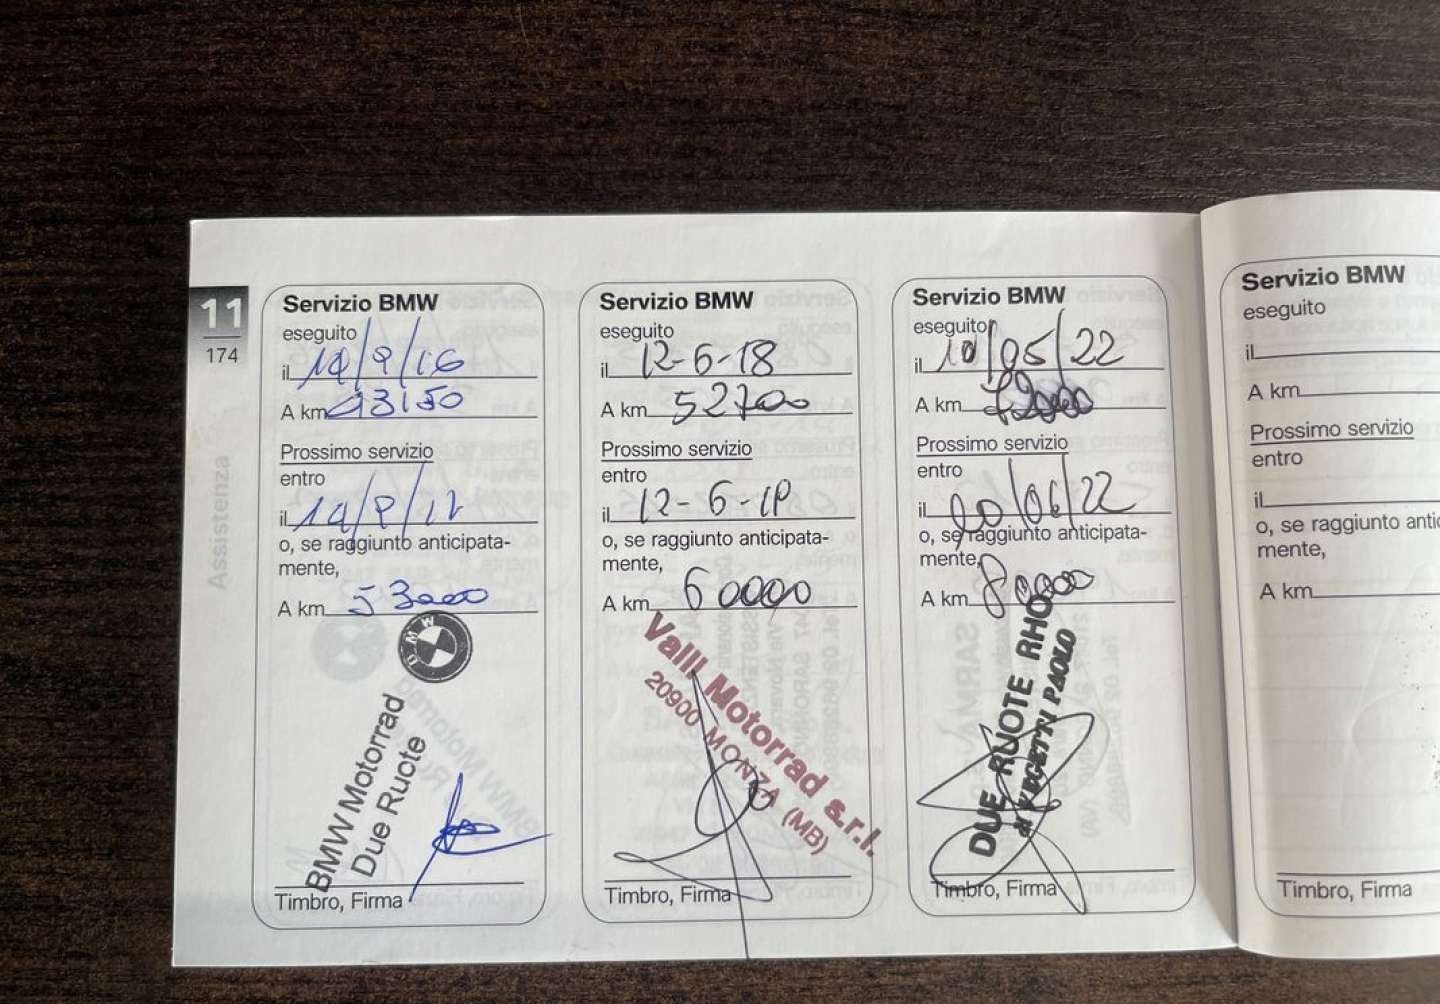 11
174
Assistenza
Servizio BMW
eseguito
il
A km 43150
Prossimo servizio
entro
il
o, se raggiunto anticipata-
mente,
A km 53000
BMW
BMW Motorrad
Due Ruote
Timbro, Firma
Servizio BMW
eseguito
il 12-6-18
A km 52700
Prossimo servizio
entro
il 12-6-19
o, se raggiunto anticipata-
mente,
A km 60000
Valli Motorrad s.r.l.
20900 MONZA (MB)
Timbro, Firma
Servizio BMW
eseguito
il 10/05/22
A km
Prossimo servizio
entro
il
o, se raggiunto anticipata-
mente,
A km 80000
DUE RUOTE RHO
di VEGETTI PAOLO
Timbro, Firma
Servizio BMW
eseguito
il
A km
Prossimo servizio
entro
il
o, se raggiunto antic
mente,
A km
Timbro, Firma